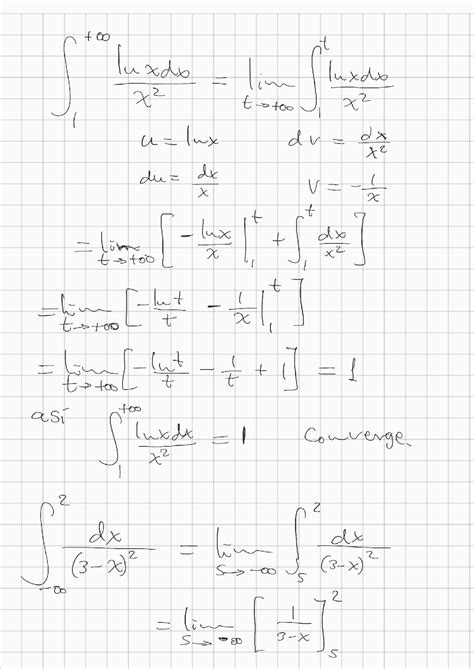 ∫₁^{+∞} lnxdx/x² = lim_{t→+∞} ∫₁^t lnxdx/x²
u = lnx dv = dx/x²
du = dx/x v = -1/x
= lim_{t→+∞} [ -lnx/x |₁^t + ∫₁^t dx/x² ]
= lim_{t→+∞} [ -lnt/t - 1/x |₁^t ]
= lim_{t→+∞} [ -lnt/t - 1/t + 1 ] = 1
así ∫₁^{+∞} lnxdx/x² = 1 Converge.
∫_{-∞}^2 dx/(3-x)² = lim_{s→-∞} ∫_s^2 dx/(3-x)²
= lim_{s→-∞} [ 1/(3-x) ]_s^2